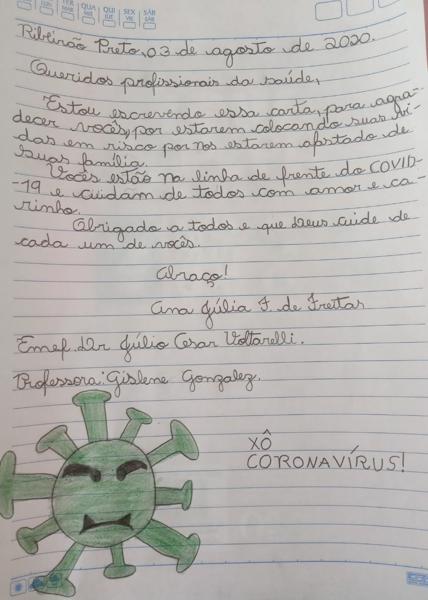 TER MAR
QUA
QUI
SEX VIE
SÁB SÁB
Ribeirão Preto, 03 de agosto de 2020.
Queridos profissionais da saúde,
Estou escrevendo essa carta, para agra-
decer vocês, por estarem colocando suas vi-
das em risco por nos estarem afastado de
suas família.
Vocês estão na linha de frente do COVID-
-19 e cuidam de todos com amor e ca-
rinho.
Obrigado a todos e que Deus cuide de
cada um de vocês.
Abraço!
Ana Júlia F. de Freitas
Emef. Dr Júlio Cesar Voltarelli.
Professora: Gislene Gonzalez.
XÔ
CORONAVÍRUS!